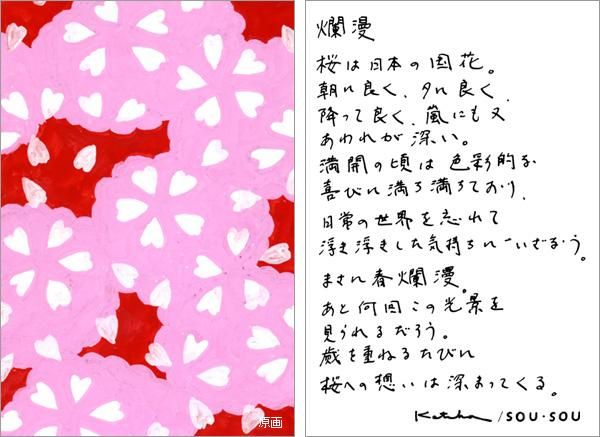 爛漫
桜は日本の国花。
朝に良く、夕に良く、
降って良く、嵐にも又
あわれが深い。
満開の頃は色彩的な
喜びに満ち満ちており、
日常の世界を忘れて
浮き浮きした気持ちにいざなう。
まさに春爛漫。
あと何回この光景を
見られるだろう。
歳を重ねるたびに
桜への想いは深まってくる。
Katsuhi / SOU・SOU
原画